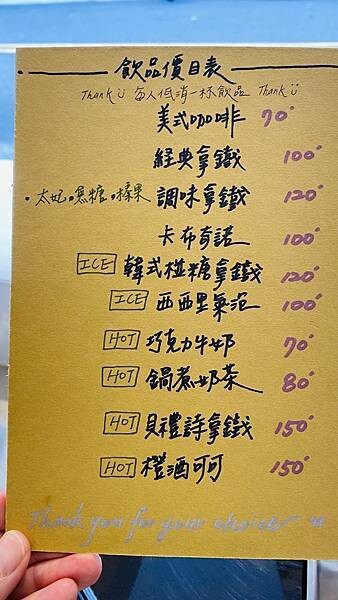 飲品價目表
Thank ü 每人低消一杯飲品 Thank ü
美式咖啡 70
經典拿鐵 100
·太妃·焦糖·榛果 調味拿鐵 120
卡布奇諾 100
ICE 韓式椪糖拿鐵 120
ICE 西西里氣泡 100
HOT 巧克力牛奶 70
HOT 鍋煮奶茶 80
HOT 貝禮詩拿鐵 150
HOT 橙酒可可 150
Thank you for your choice